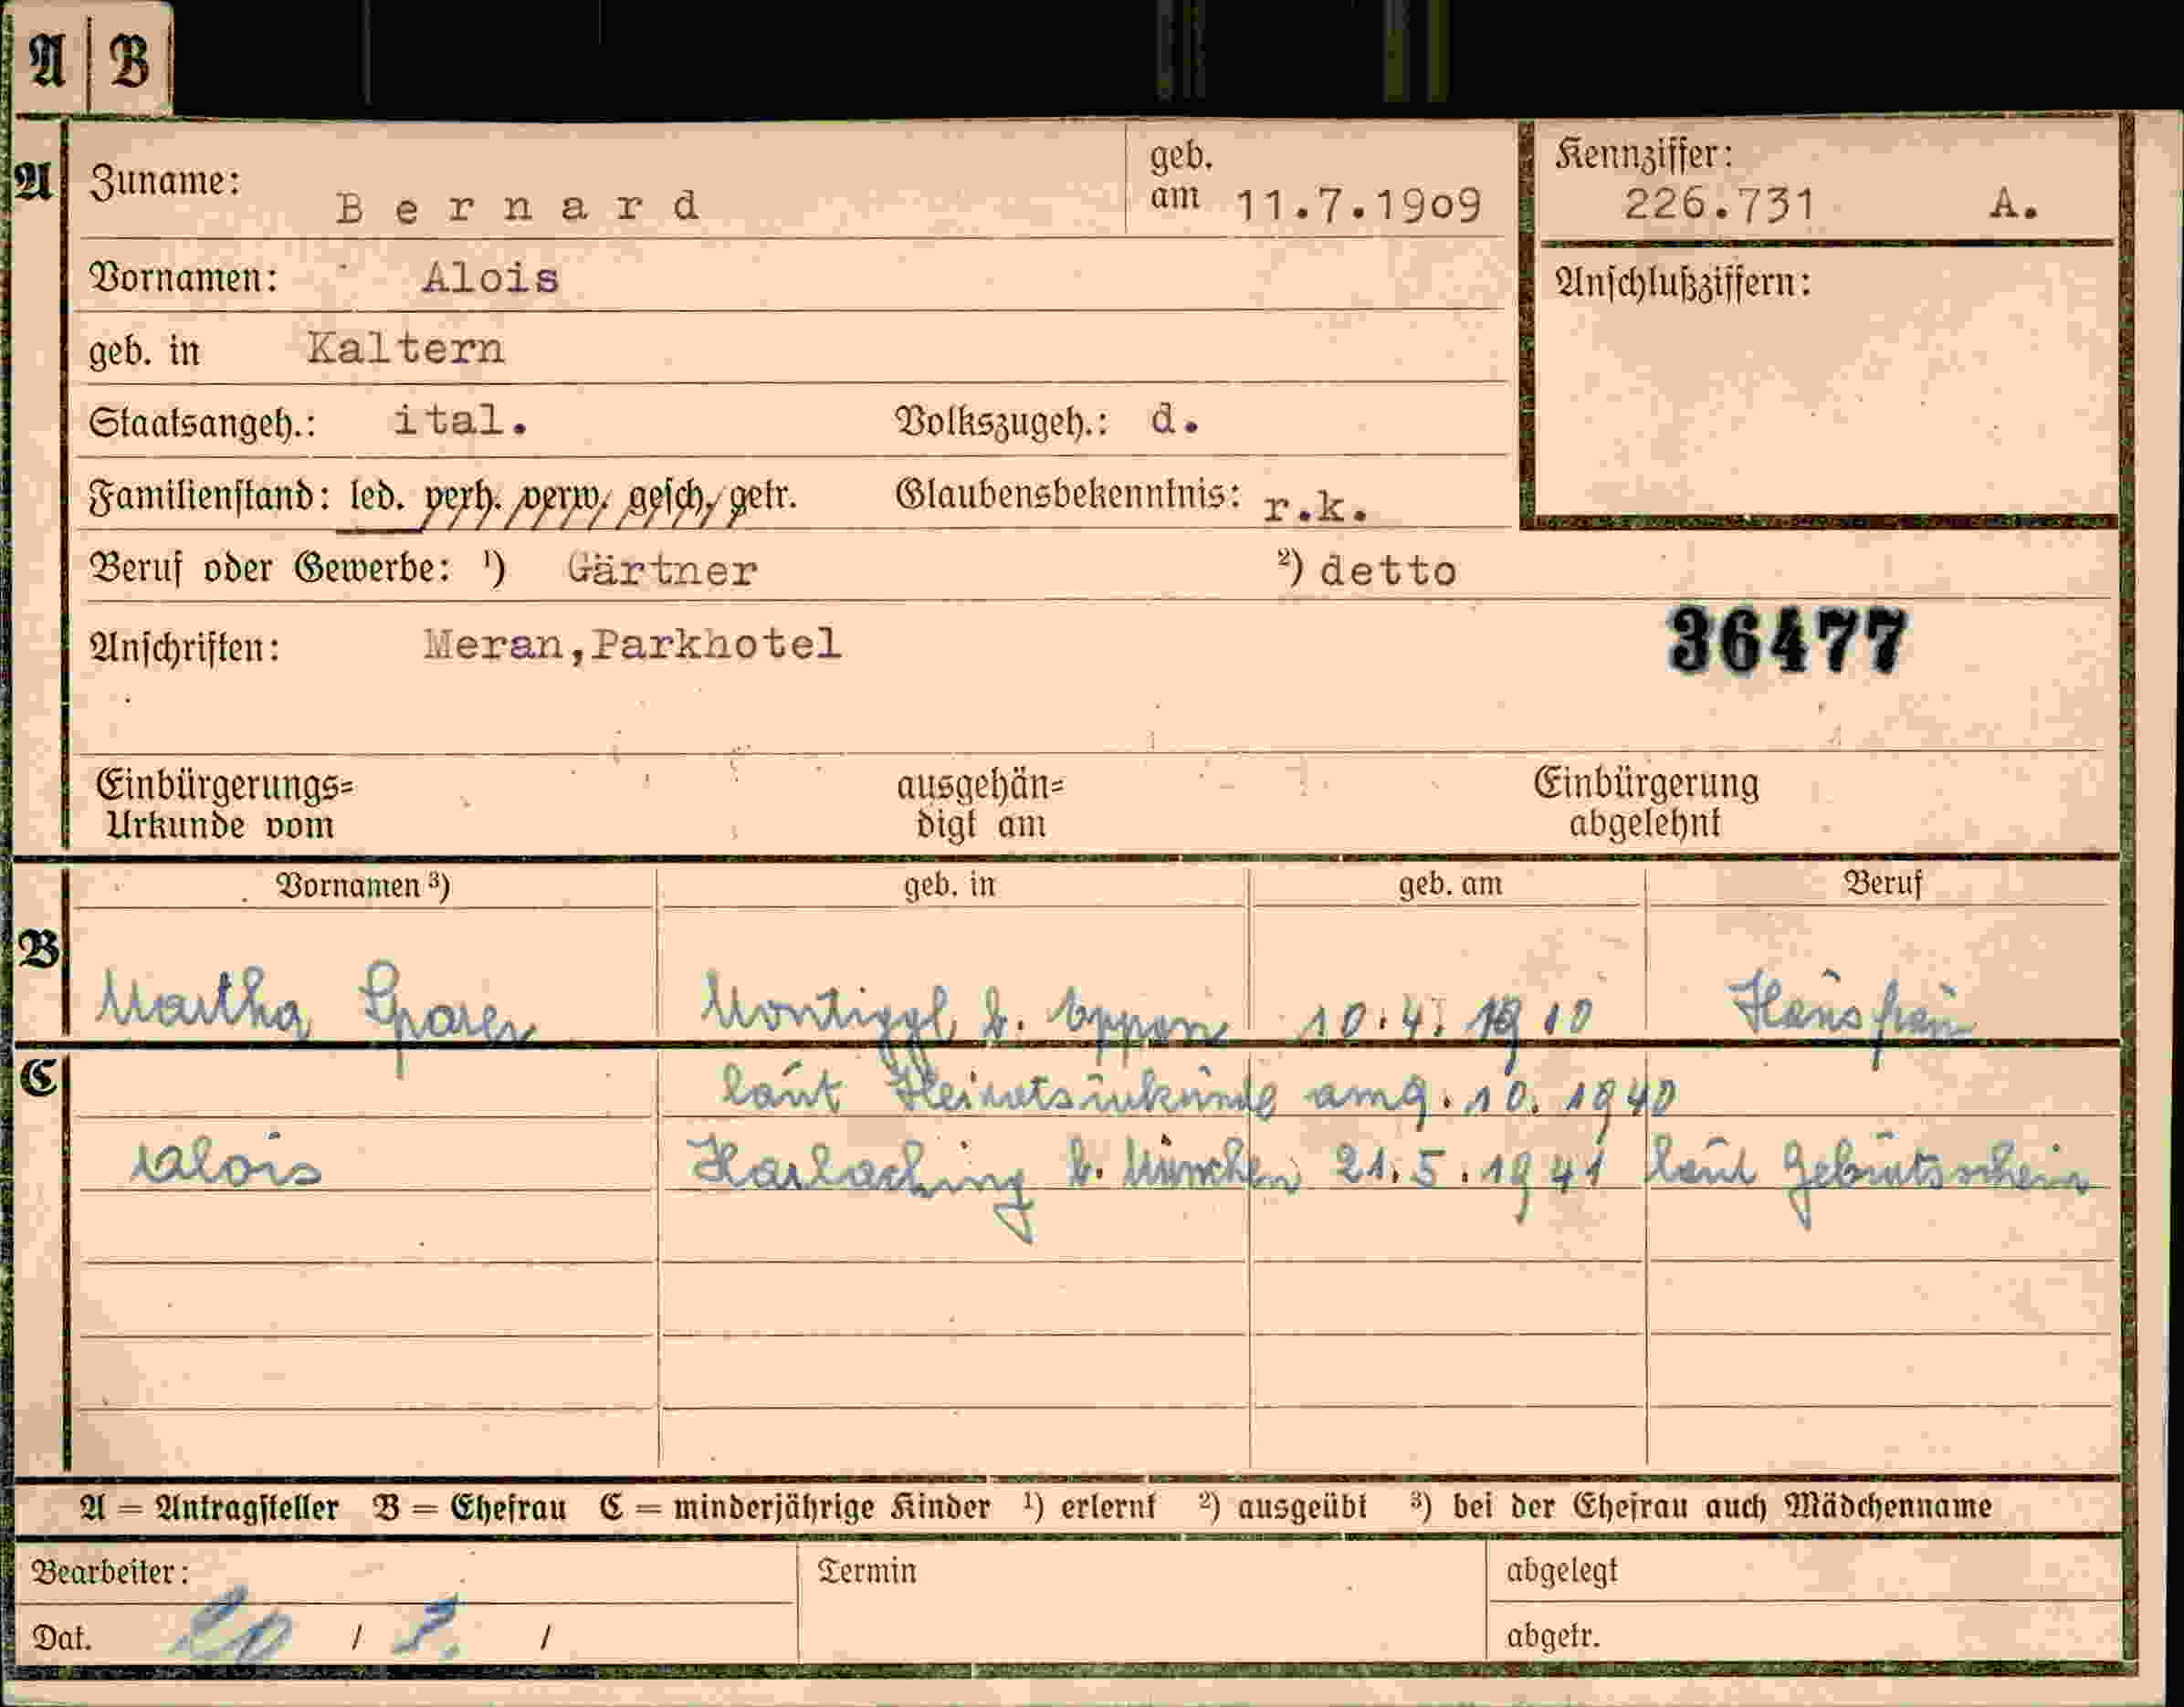 A B
A Zuname: Bernard geb. am 11.7.1909 Kennziffer: 226.731 A.
Vornamen: Alois Anschlußziffern:
geb. in Kaltern
Staatsangeh.: ital. Volkszugeh.: d.
Familienstand: led. verh. verw. gesch. getr. Glaubensbekenntnis: r.k.
Beruf oder Gewerbe: ¹) Gärtner ²) detto
Anschriften: Meran,Parkhotel 36477
Einbürgerungs= ausgehän= Einbürgerung
Urkunde vom digt am abgelehnt
Vornamen ³) geb. in geb. am Beruf
B Martha Sparer Montiggl b. Eppan 10.4.1910 Hausfrau
C laut Heiratsurkunde am 9.10.1940
Alois Harlaching b. München 21.5.1941 laut Geburtsschein
A = Antragsteller B = Ehefrau C = minderjährige Kinder ¹) erlernt ²) ausgeübt ³) bei der Ehefrau auch Mädchenname
Bearbeiter: Termin abgelegt
Dat. / / abgetr.